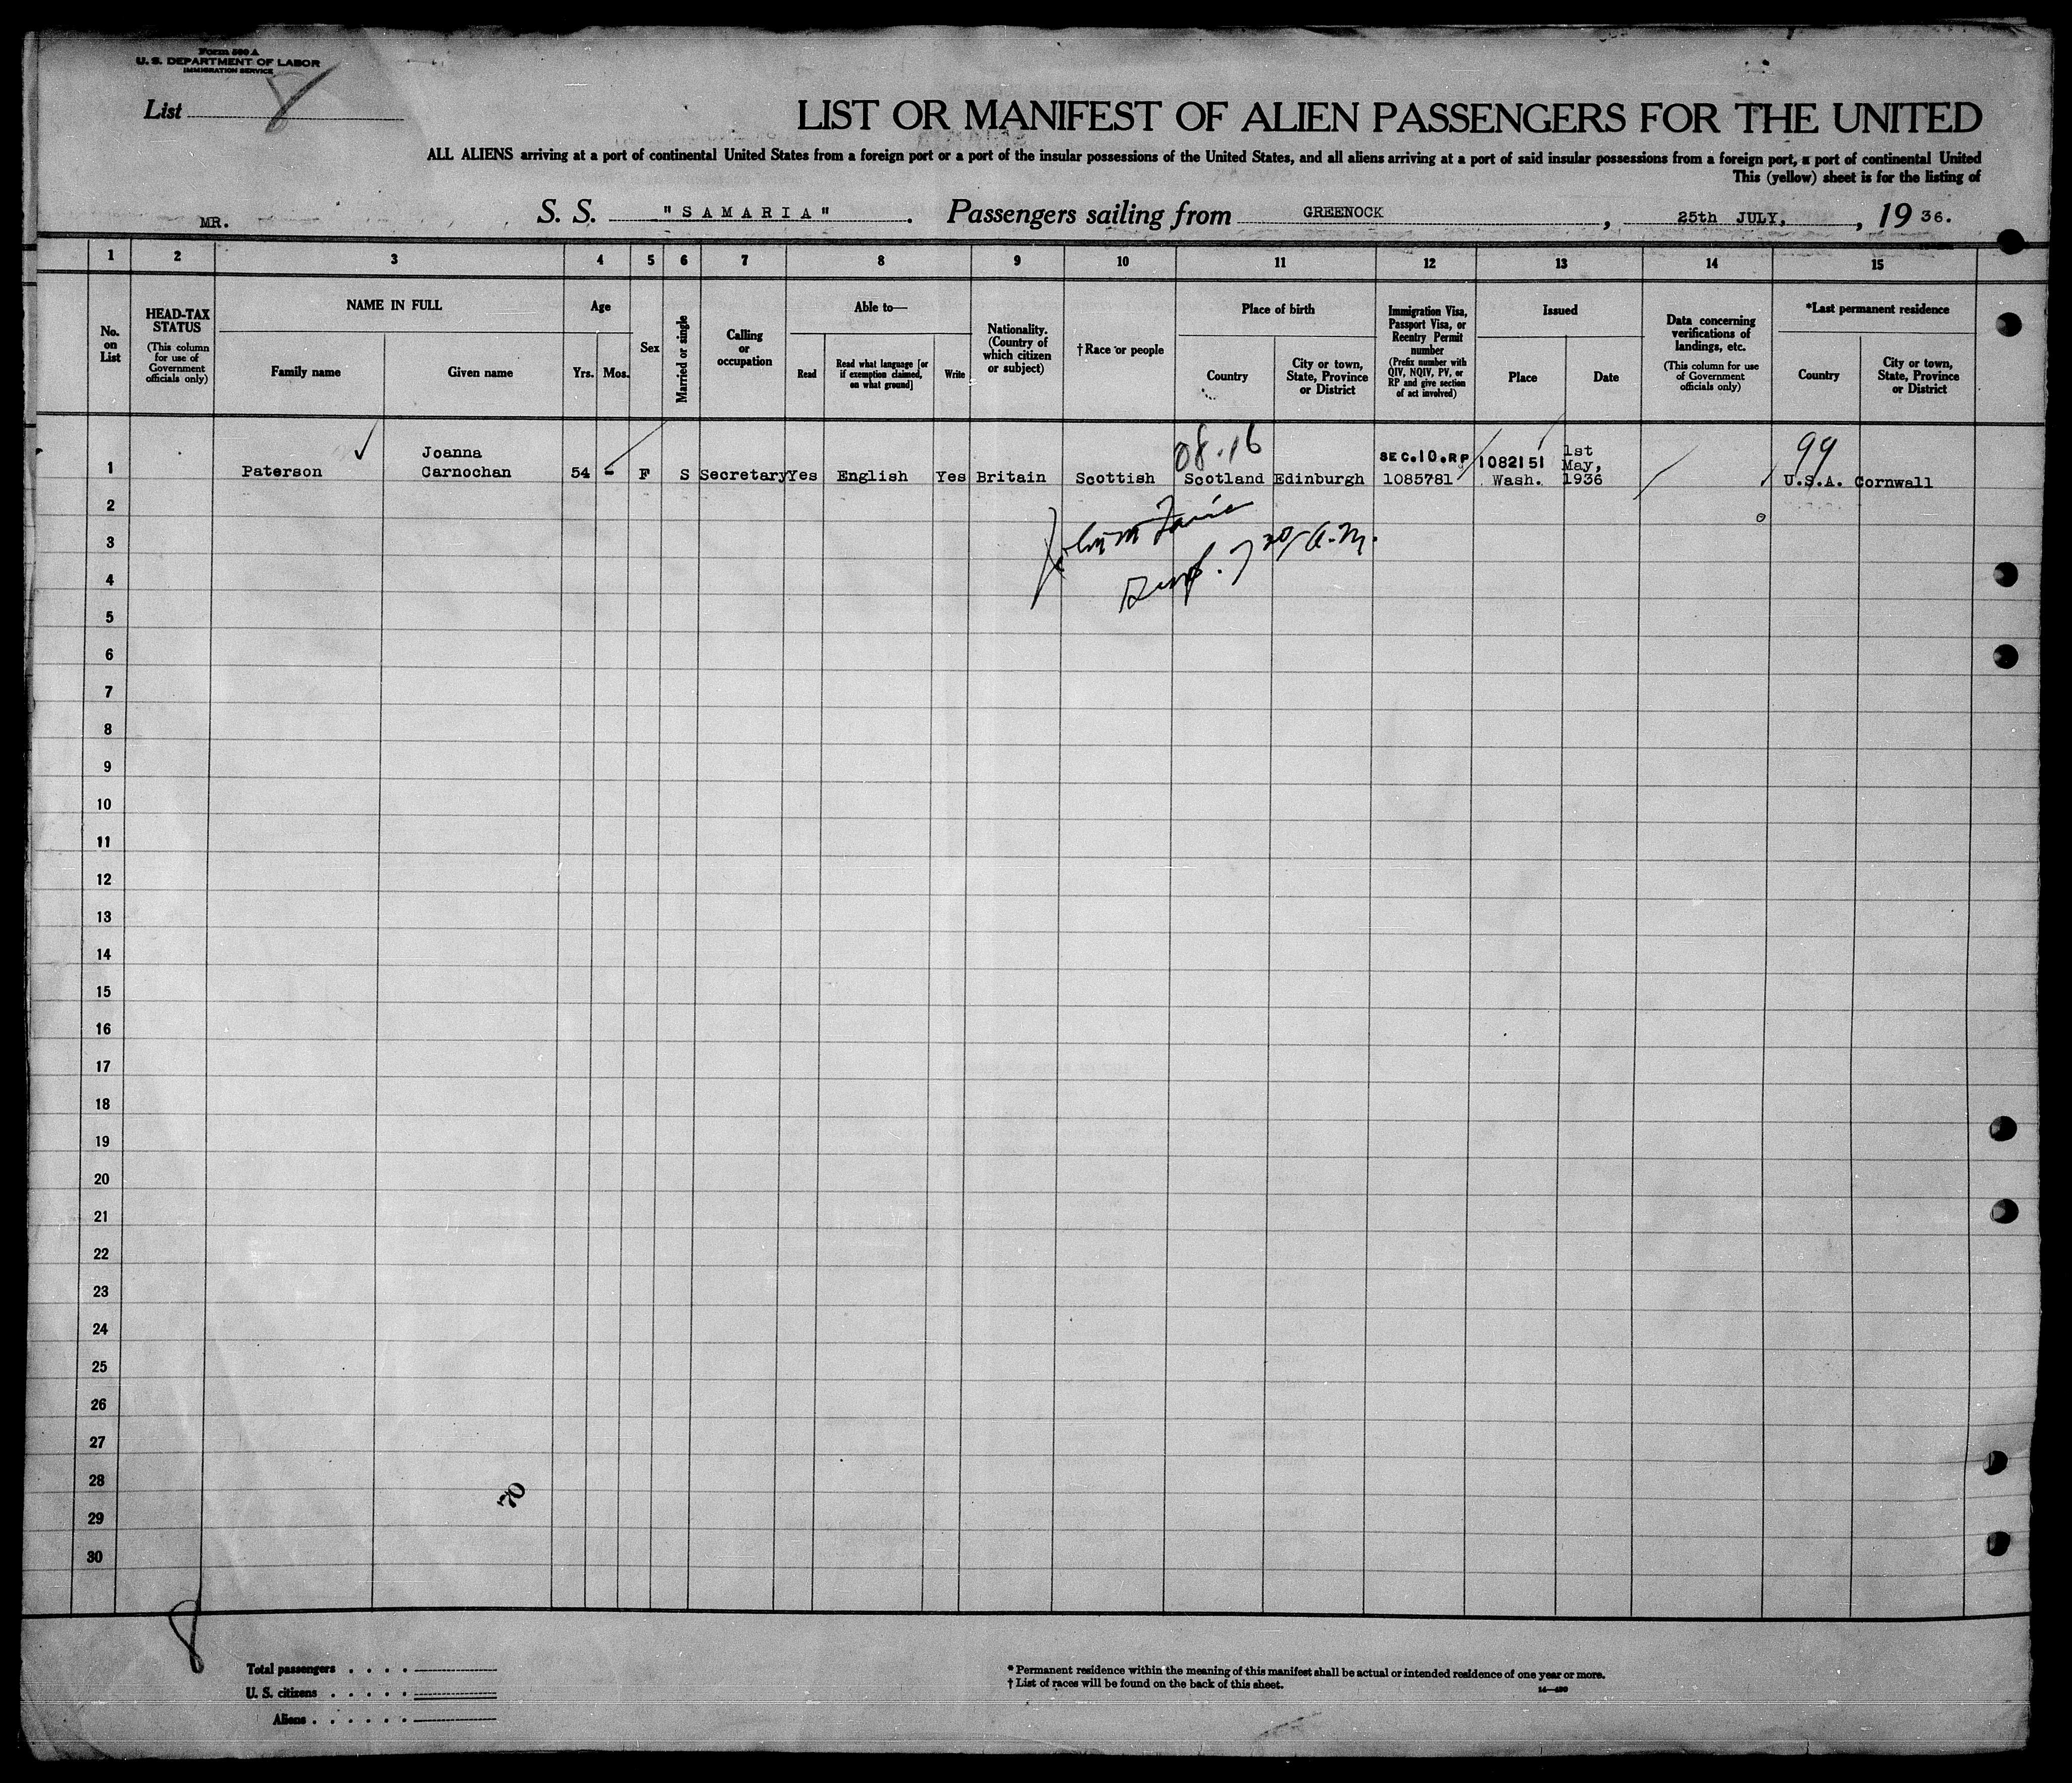 Form 500 A
U. S. DEPARTMENT OF LABOR
IMMIGRATION SERVICE
List 8
LIST OR MANIFEST OF ALIEN PASSENGERS FOR THE UNITED
ALL ALIENS arriving at a port of continental United States from a foreign port or a port of the insular possessions of the United States, and all aliens arriving at a port of said insular possessions from a foreign port, a port of continental United
This (yellow) sheet is for the listing of
MR.
S. S. "SAMARIA". Passengers sailing from GREENOCK, 25th JULY, , 19 36.
1 2 3 4 5 6 7 8 9 10 11 12 13 14 15
No. on List
HEAD-TAX STATUS
(This column for use of Government officials only)
NAME IN FULL
Family name
Given name
Age
Yrs. Mos.
Sex
Married or single
Calling or occupation
Able to—
Read
Read what language [or if exemption claimed, on what ground]
Write
Nationality. (Country of which citizen or subject)
†Race or people
Place of birth
Country
City or town, State, Province or District
Immigration Visa, Passport Visa, or Reentry Permit number
(Prefix number with QIV, NQIV, PV, or RP and give section of act involved)
Issued
Place
Date
Data concerning verifications of landings, etc.
(This column for use of Government officials only)
*Last permanent residence
Country
City or town, State, Province or District
08.16
99
1 Paterson Joanna Carnochan 54 - F S Secretary Yes English Yes Britain Scottish Scotland Edinburgh SEC.10.RP 1085781 1082151 Wash. 1st May, 1936 U.S.A. Cornwall
2
3
4
5
6
7
8
9
10
11
12
13
14
15
16
17
18
19
20
21
22
23
24
25
26
27
28
29
30
70
8
Total passengers . . . .
U. S. citizens . . . . .
Aliens . . . . . .
* Permanent residence within the meaning of this manifest shall be actual or intended residence of one year or more.
† List of races will be found on the back of this sheet.